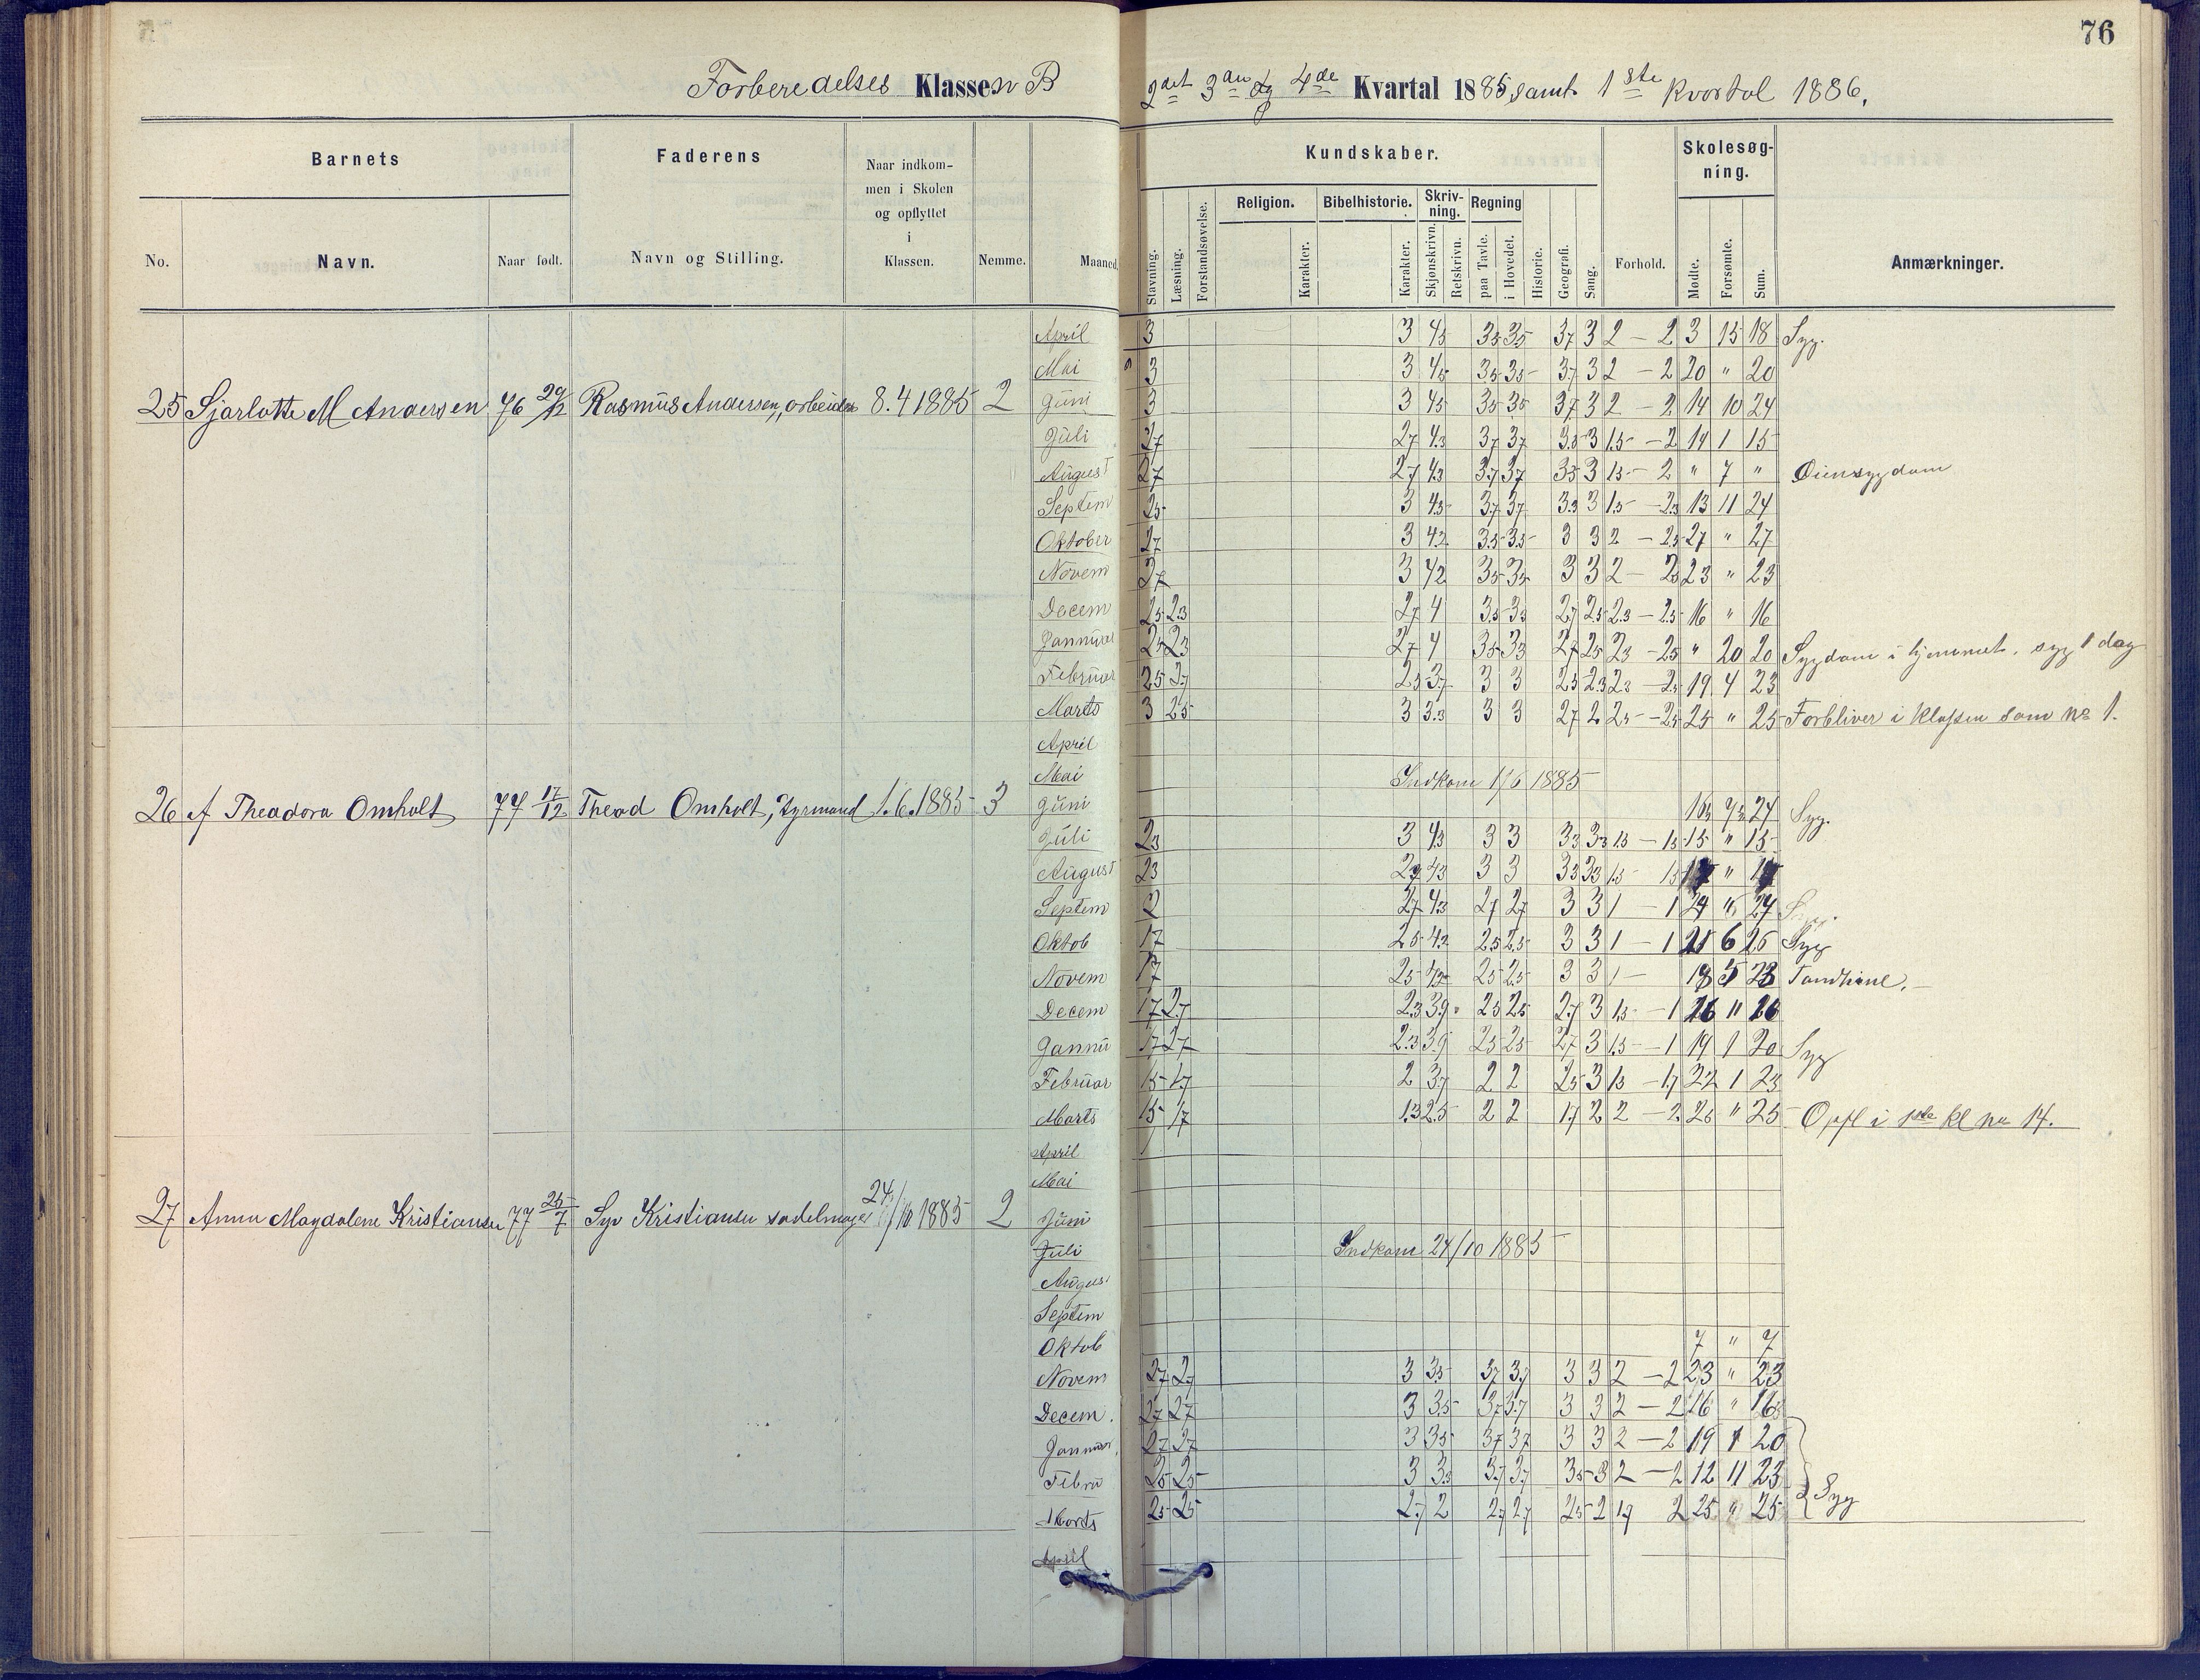 76
Forberedelses Klassen B
2det 3die og 4de Kvartal 1885, samt 1ste Kvartal 1886.
Barnets
Faderens
Naar indkom-
men i Skolen
og opflyttet
i
Klassen.
Kundskaber.
Skolesøg-
ning.
No.
Navn.
Naar født.
Navn og Stilling.
Nemme.
Maaned.
Stavning.
Læsning.
Forstandsøvelse.
Religion.
Karakter.
Bibelhistorie.
Karakter.
Skriv-
ning.
Skjønskrivn.
Retskrivn.
Regning
paa Tavle.
i Hovedet.
Historie.
Geografi.
Sang.
Forhold.
Mødte.
Forsømte.
Sum.
Anmærkninger.
25 Sjarlotte M Andersen 76 29/12 Rasmus Andersen, arbeider 8.4 1885 2
April 3 3 45 35 35 37 3 2 – 2 3 15 18 Syg.
Mai 3 3 45 35 35 37 3 2 – 2 20 " 20
Juni 3 3 45 35 35 37 3 2 – 2 14 10 24
Juli 27 27 43 37 37 35 3 15 – 2 14 1 15
August 27 27 43 37 37 35 3 15 – 2 " 7 " Øiensygdom
Septem 25 3 43 37 37 33 3 15 – 23 13 11 24
Oktober 27 3 42 35 35 3 3 2 – 25 27 " 27
Novem 27 3 42 35 35 3 3 2 – 25 23 " 23
Decem 25 23 27 4 35 33 27 25 23 – 25 16 " 16
Jannuar 25 23 27 4 35 33 27 25 23 – 25 " 20 20 Sygdom i hjemmet, syg 1 dag
Februar 25 27 25 37 3 3 25 23 23 – 25 19 4 23
Marts 3 25 3 33 3 3 27 2 25 – 25 25 " 25 Forbliver i klassen som no 1.
April
Mai Indkom 1/6 1885
26 A Theadora Omholt 77 17/12 Theod Omholt, Styrmand 1.6.1885 3
Juni 24 Syg.
Juli 23 3 43 3 3 33 33 15 – 15 15 " 15
August 23 27 43 3 3 33 33 15 – 15 "
Septem 2 27 43 27 27 3 3 1 – 1 24 " 24
Oktob 17 25 42 25 25 3 3 1 – 1 6 Syg
Novem 17 25 42 25 25 3 3 1 – 18 5 23 Tandpine.
Decem 17 27 23 39 25 25 27 3 15 – 1 26 " 26
Jannu 17 27 23 39 25 25 27 3 15 – 1 19 1 20 Syg
Februar 15 17 2 37 2 2 25 3 15 – 17 22 1 23
Marts 15 17 13 25 2 2 17 2 2 – 2 25 " 25 Opfl i 1ste kl no 14.
April
Mai
27 Anna Magdalene Kristiansen 77 25/7 Syv Kristiansen sadelmager 24/10 1885 2
Juni
Juli Indkom 24/10 1885
August
Septem
Oktob 7 " 7
Novem 27 27 3 35 37 37 3 3 2 – 2 23 " 23
Decem. 27 27 3 35 37 37 3 3 2 – 2 16 " 16
Januar. 27 27 3 35 37 37 3 3 2 – 2 19 1 20
Febru 25 25 3 33 37 37 35 3 2 – 2 12 11 23
Marts 25 25 27 2 27 27 25 2 17 2 25 " 25 Syg
April